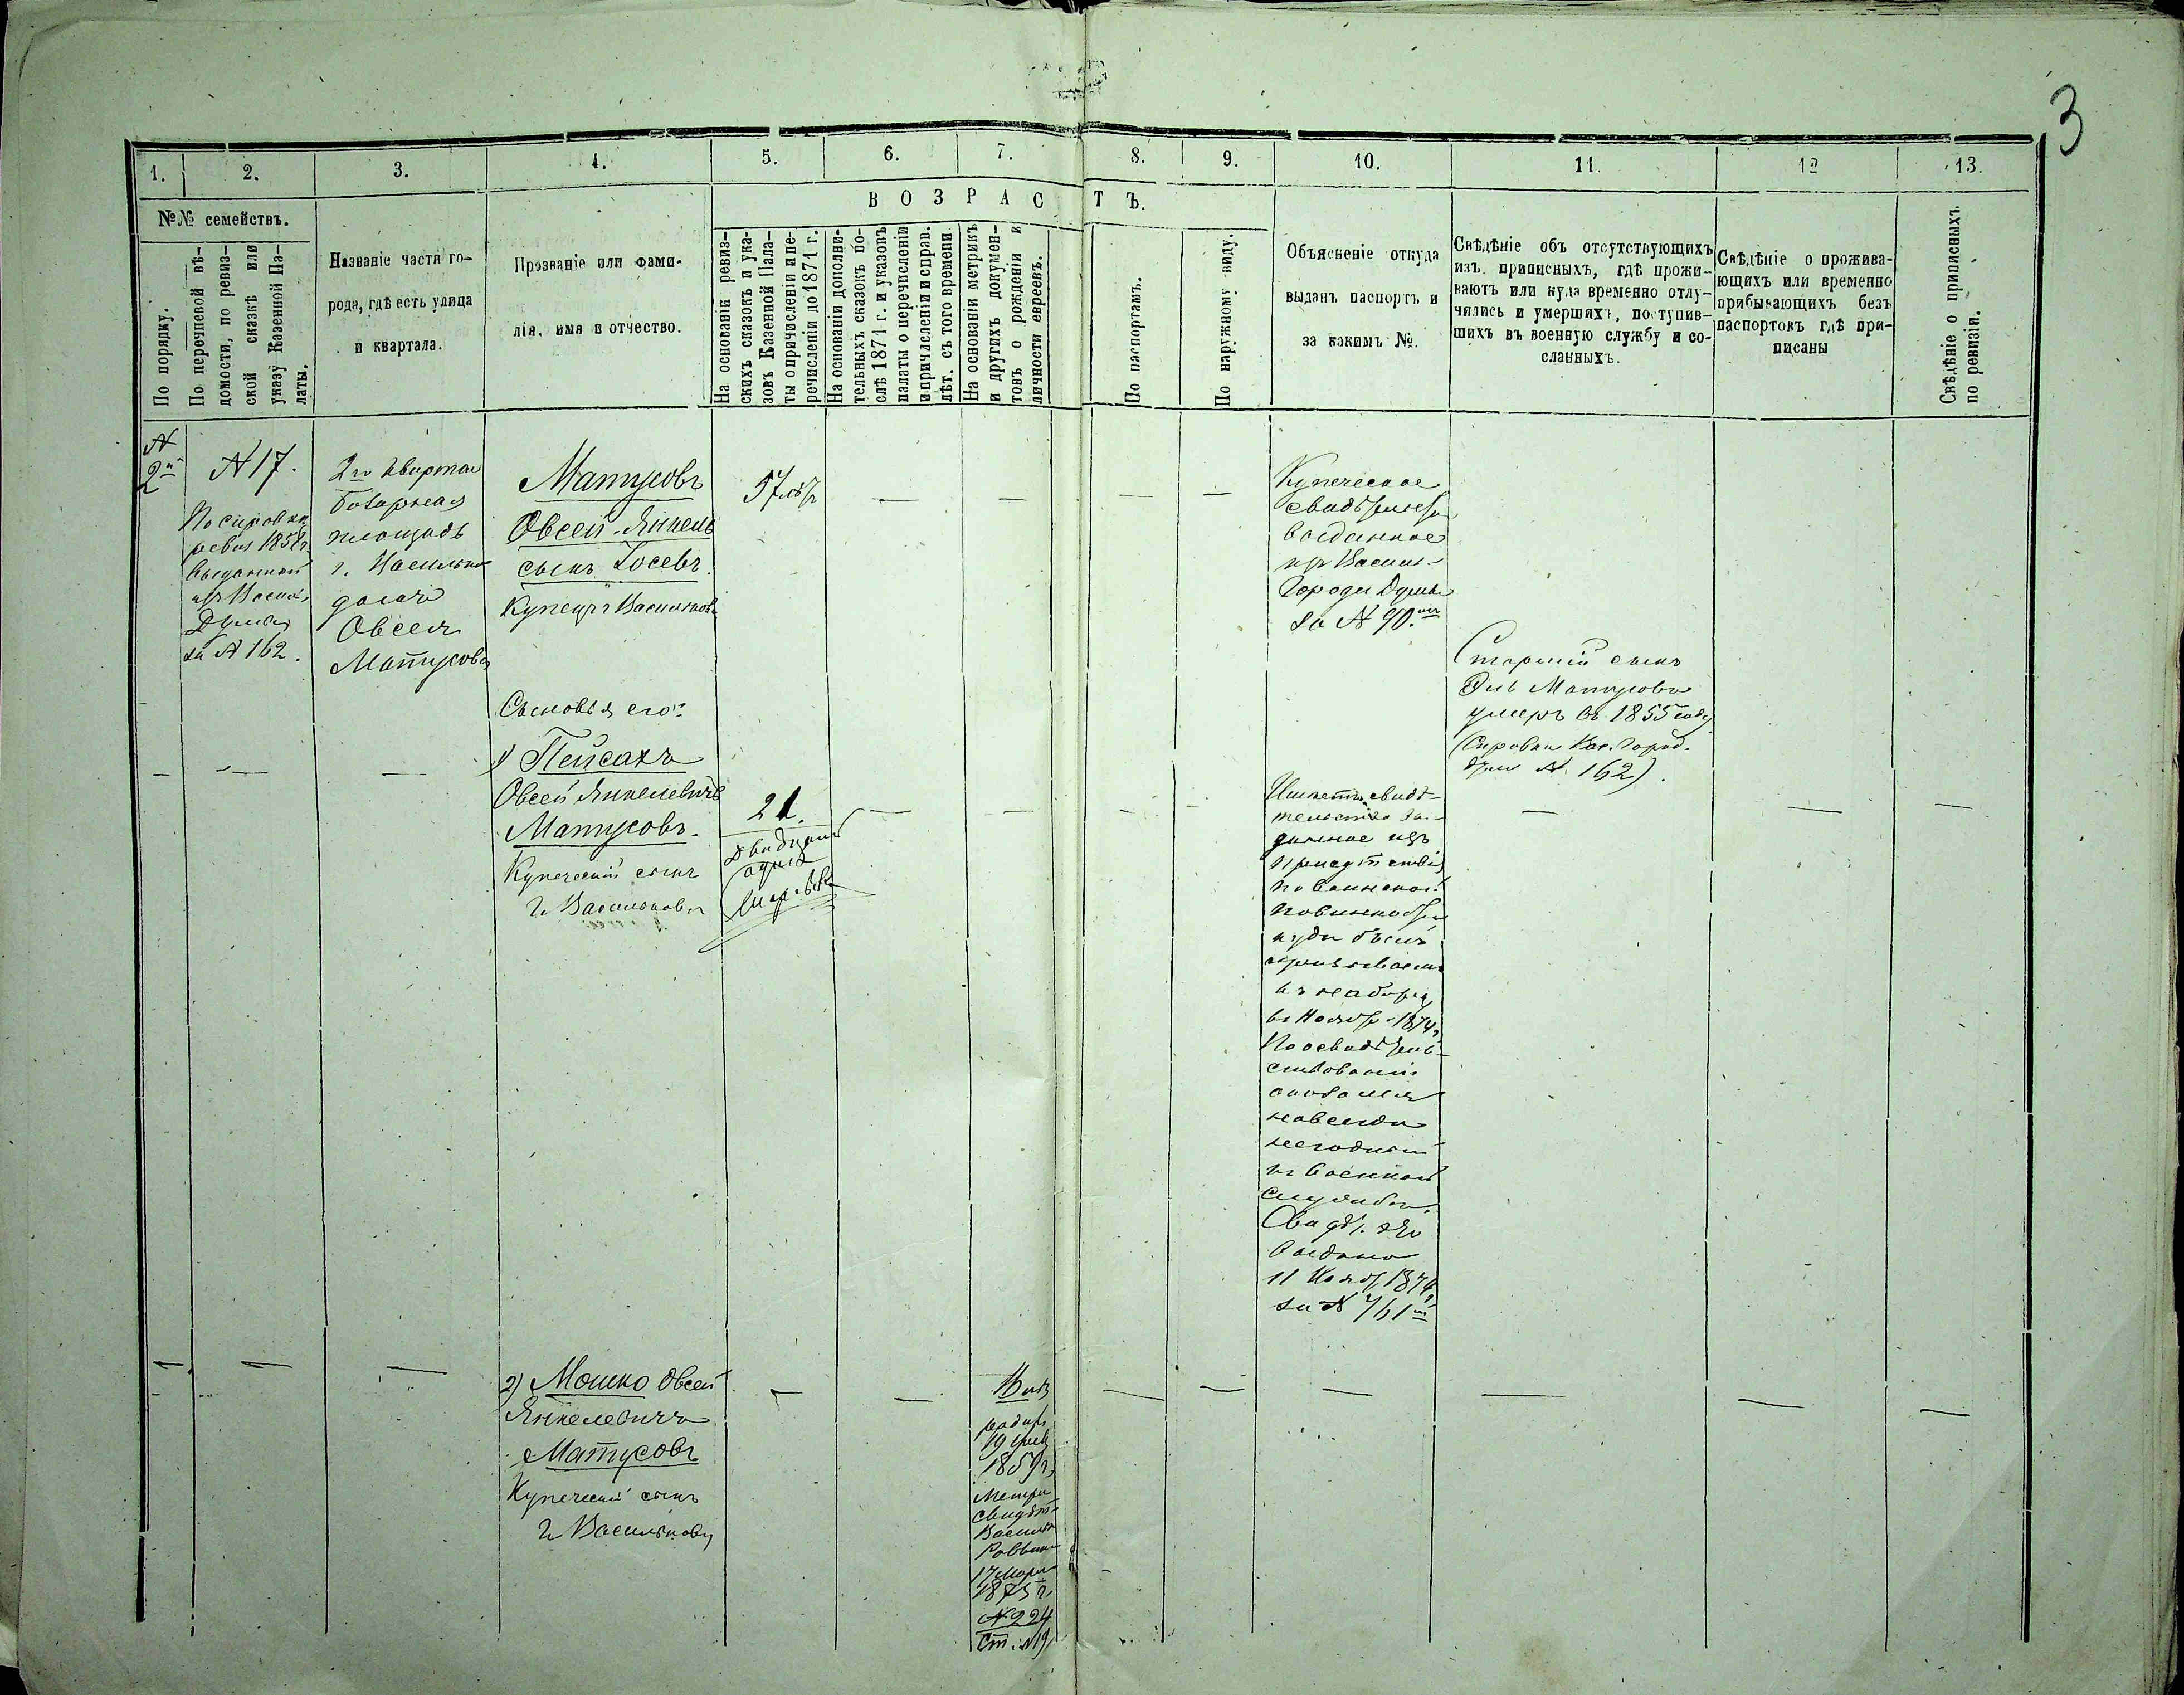 3
1. 2. 3. 4. 5. 6. 7. 8. 9. 10. 11. 12 13.
№№ семействъ.
По порядку.
По перечневой вѣ-
домости, по ревиз-
ской сказкѣ или
указу Казенной Па-
латы.
Названіе части го-
рода, гдѣ есть улица
и квартала.
Прозваніе или фами-
лія, имя и отчество.
ВОЗРАСТЪ.
На основаніи ревиз-
скихъ сказокъ и ука-
зовъ Казенной Пала-
ты о причисленіи и пе-
речисленіи до 1871 г.
На основаніи дополни-
тельныхъ сказокъ по-
слѣ 1871 г. и указовъ
палаты о перечисленіи
и причисленіи и справ.
лѣт. съ того времени
На основаніи метрикъ
и другихъ докумен-
товъ о рожденіи и
личности евреевъ.
По паспортамъ.
По наружному виду.
Объясненіе откуда
выданъ паспортъ и
за какимъ №.
Свѣдѣніе объ отсутствующихъ
изъ приписныхъ, гдѣ прожи-
ваютъ или куда временно отлу-
чились и умершихъ, поступив-
шихъ въ военную службу и со-
сланныхъ.
Свѣдѣніе о прожива-
ющихъ или временно
прибывающихъ безъ
паспортовъ гдѣ при-
писаны
Свѣдѣніе о приписныхъ
по ревизіи.
№
2й
№ 17.
По справкѣ
ревиз 1858 г.
выданной
изъ Васил.
Думы
за № 162.
2го квартал
Базарная
площадь
г. Василькова
домъ
Овсея
Матусова
Матусовъ
Овсей-Янкель
сынъ Іосевъ.
Купецъ г Васильков
57 лѣтъ
Купеческое
свидѣтельство
выданное
изъ Васил.
Городск Думы
за № 90.
Старшій сынъ
Эль Матусовъ
умеръ въ 1855 году
(Справка Вас. Город.
думы № 162).
Сыновья его:
1) Пейсахъ
Овсей Янкелевичъ
Матусовъ.
Купеческій сынъ
г. Василькова
21.
Двадцать
одинъ
Имѣетъ свидѣ-
тельство вы-
данное изъ
Присутствія
по воинской
повинности
куда былъ
призываемъ
къ набору
въ Ноябр. 1874 г.
По освидѣтель-
ствованіи
оказался
навсегда
негоднымъ
къ военной
службѣ.
Свидѣт. это
выдано
11 Нояб. 1874 г.
за № 761
2) Мошко Овсей
Янкелевичъ
Матусовъ
Купеческій сынъ
г. Василькова
16 лѣт
родил.
19
1859 г.
Метри
свидѣт.
Васильк
Раввина
17 Марта
1875 г.
№ 224
Ст. № 19